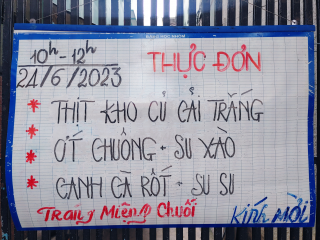 10h - 12h
24/6/2023
THỰC ĐƠN
* THỊT KHO CỦ CẢI TRẮNG
* ỚT CHUÔNG + SU XÀO
* CANH CÀ RỐT - SU SU
* Tráng Miệng Chuối
Kính MỜI